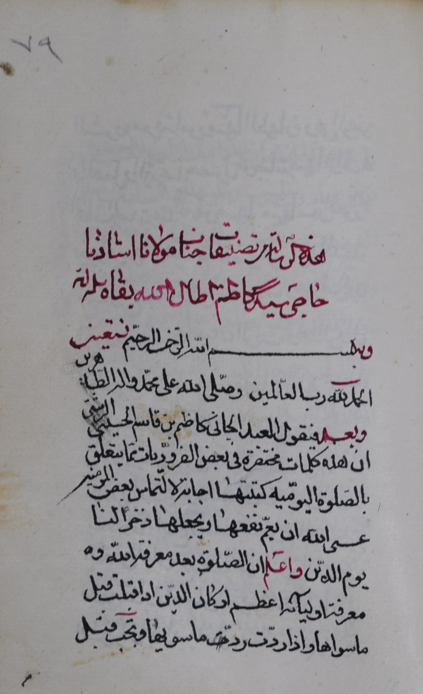 ٧٩
هذه رسالة من تصنيفات جناب مولانا استاذنا
حاجي سيد كاظم اطال الله بقاه
وبه نستعين
بسم الله الرحمن الرحيم
الحمد لله رب العالمين وصلى الله على محمد واله الطاهرين
وبعد فيقول العبد الجاني كاظم بن قاسم الحسيني الرشتي
ان هذه كلمات مختصرة في بعض الضروريات مما يتعلق
بالصلوة اليومية كتبتها اجابة لالتماس بعض
عسى الله ان يعم نفعها ويجعلها ذخرا لنا
يوم الدين واعلم ان الصلوة بعد معرفة الله و
معرفة اوليائه اعظم اركان الدين اذا قبلت قبل
ماسواها واذا ردت رد ماسويها وتجب قبل